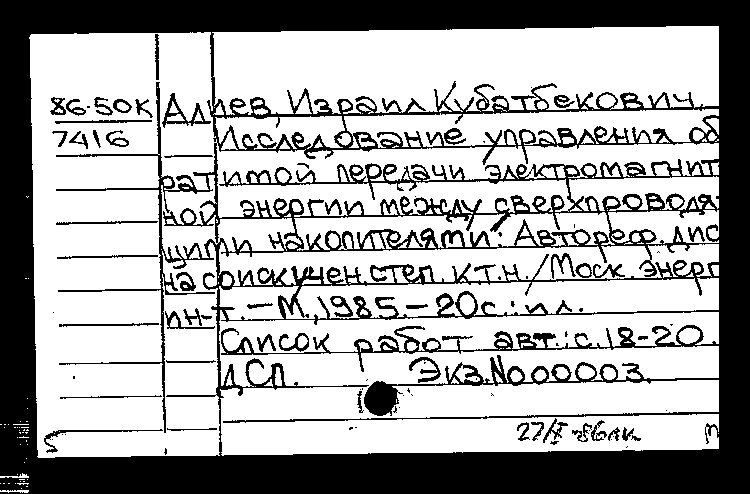 86-50К Алиев, Израил Кубатбекович.
7416 Исследование управления об
ратимой передачи электромагнит
ной энергии между сверхпроводя
щими накопителями: Автореф. дис
на соиск. учен. степ. к.т.н. / Моск. энерг
ин-т. – М., 1985. – 20с.: ил.
Список работ авт.: с. 18-20.
ДСП. Экз. № 00003.